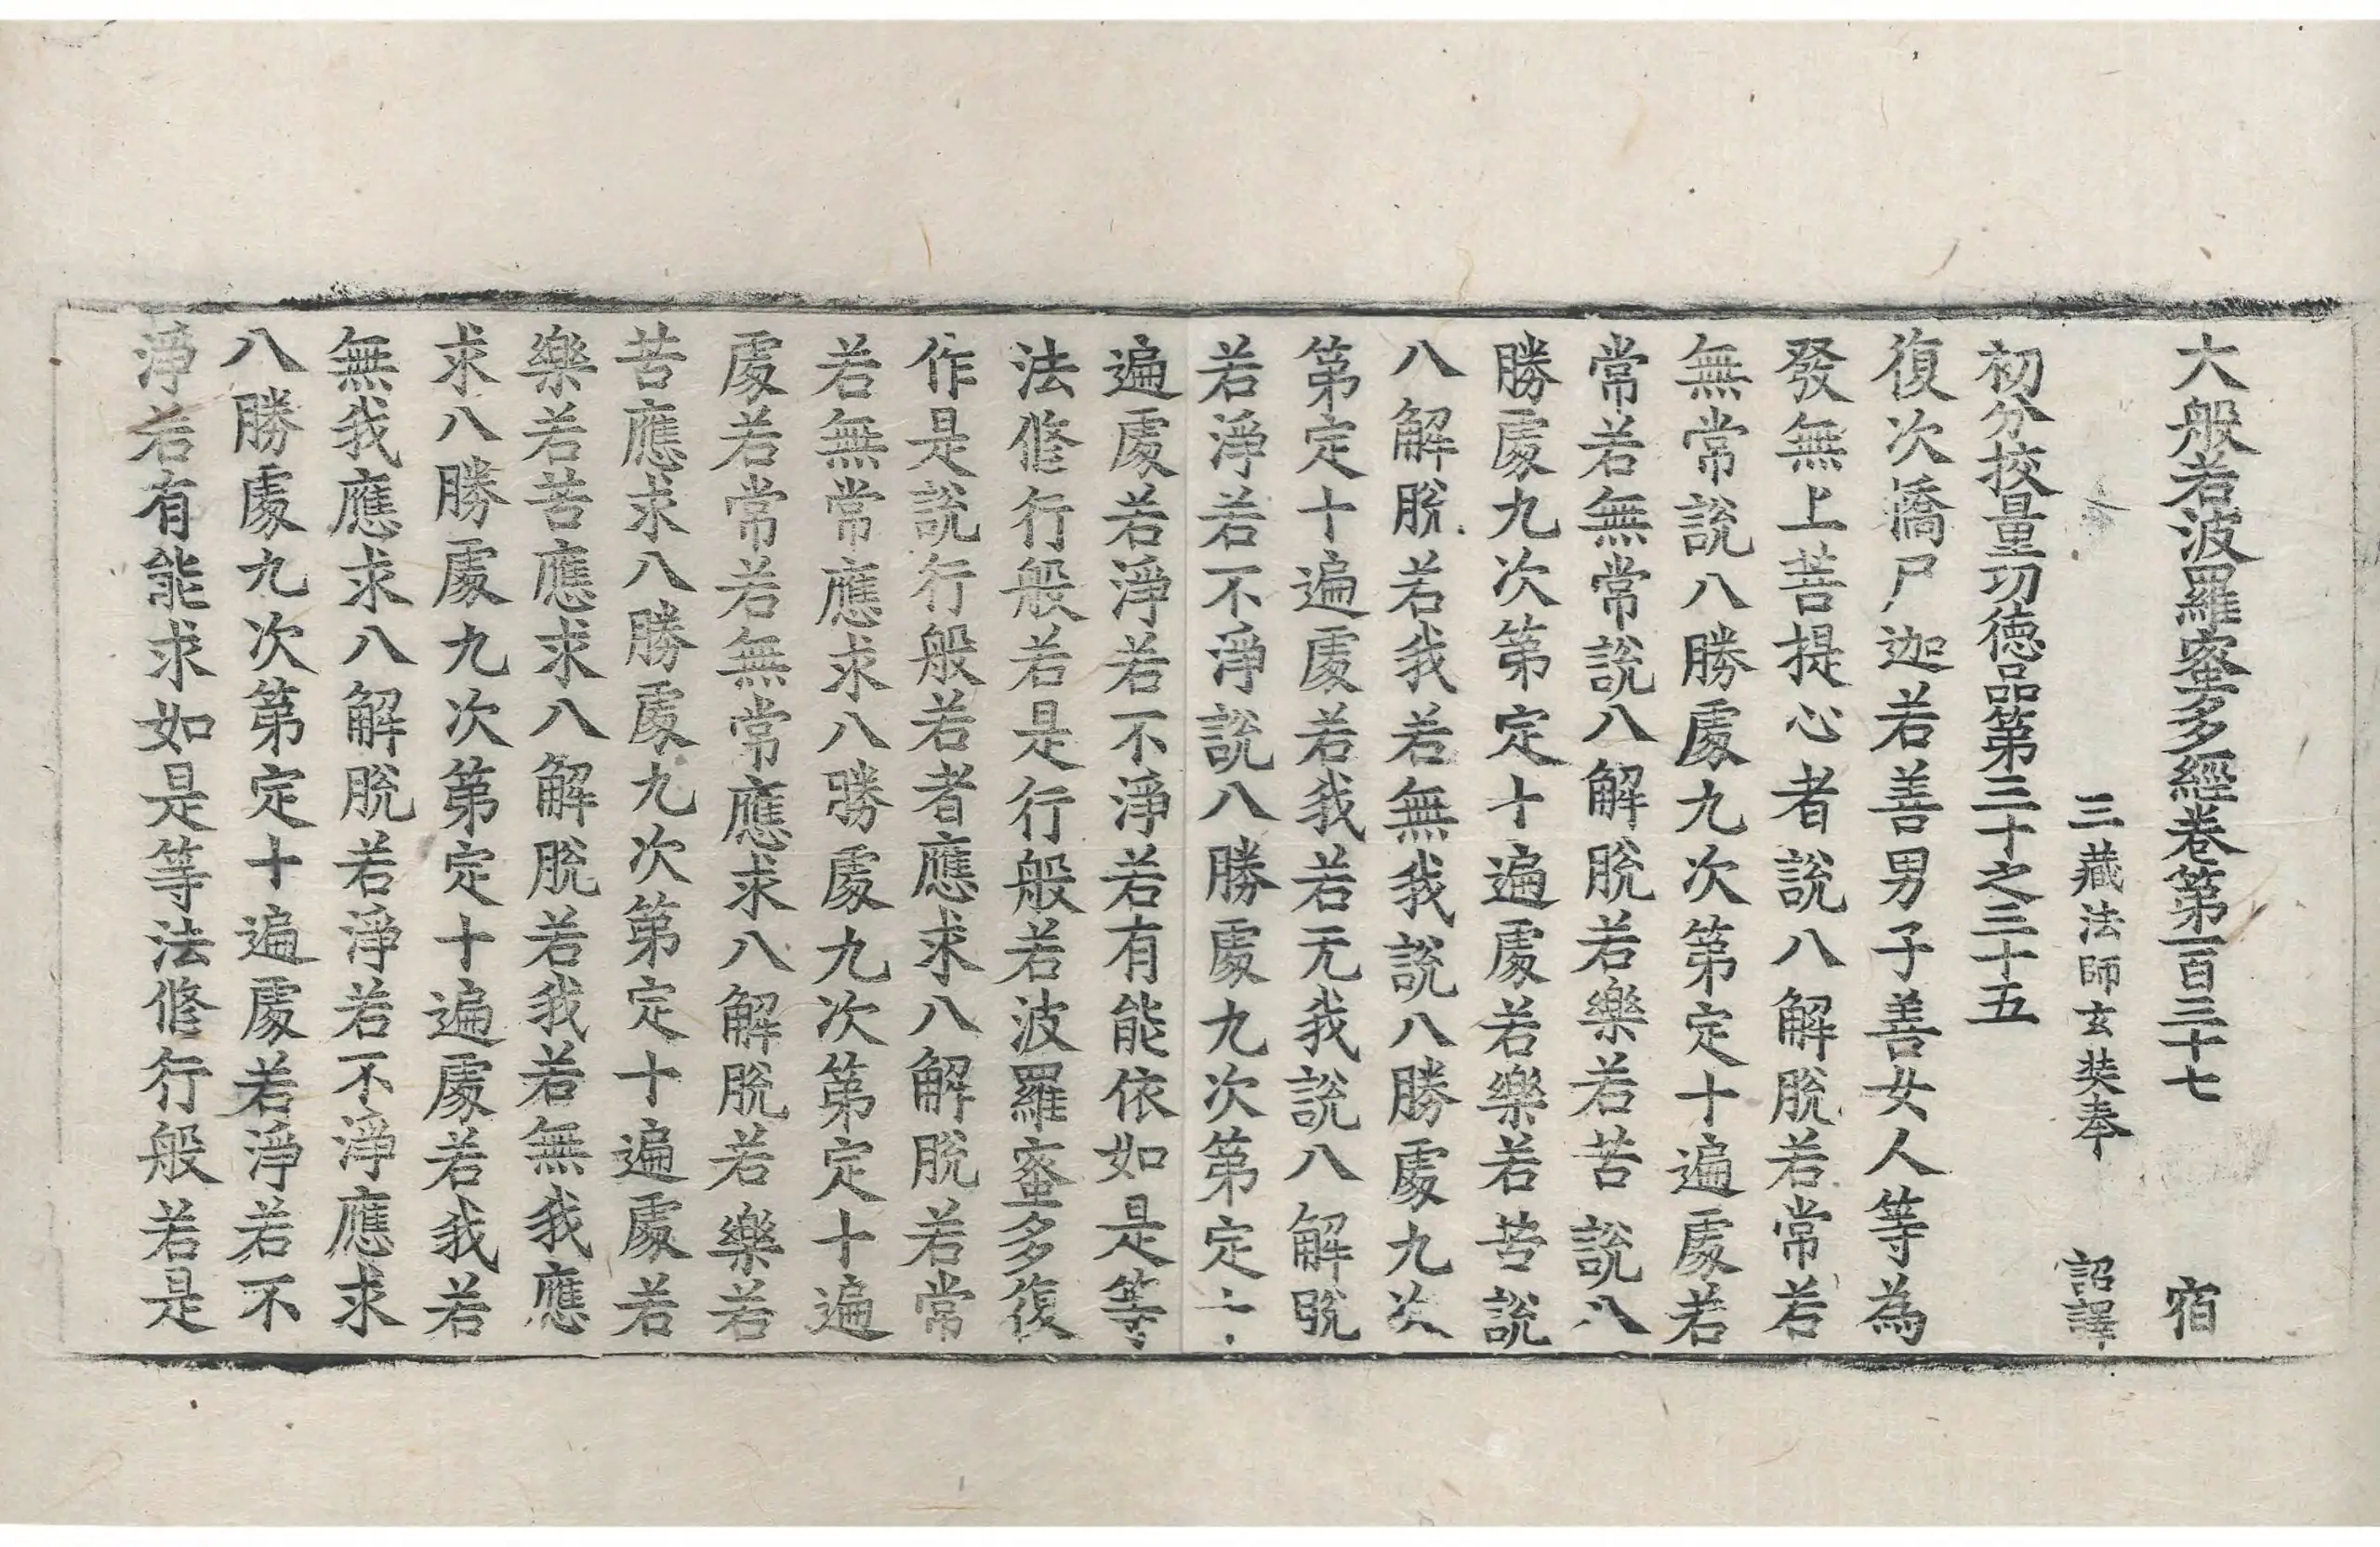 大般若波羅蜜多經卷第一百三十七 宿
三藏法師玄奘奉 詔譯
初分挍量功德品第三十之三十五
復次憍尸迦若善男子善女人等為
發無上菩提心者說八解脫若常若
無常說八勝處九次第定十遍處若
常若無常說八解脫若樂若苦說八
勝處九次第定十遍處若樂若苦說
八解脫若我若無我說八勝處九次
第定十遍處若我若无我說八解脫
若淨若不淨說八勝處九次第定
遍處若淨若不淨若有能依如是等
法修行般若是行般若波羅蜜多復
作是說行般若者應求八解脫若常
若無常應求八勝處九次第定十遍
處若常若無常應求八解脫若樂若
苦應求八勝處九次第定十遍處若
樂若苦應求八解脫若我若無我應
求八勝處九次第定十遍處若我若
無我應求八解脫若淨若不淨應求
八勝處九次第定十遍處若淨若不
淨若有能求如是等法修行般若是